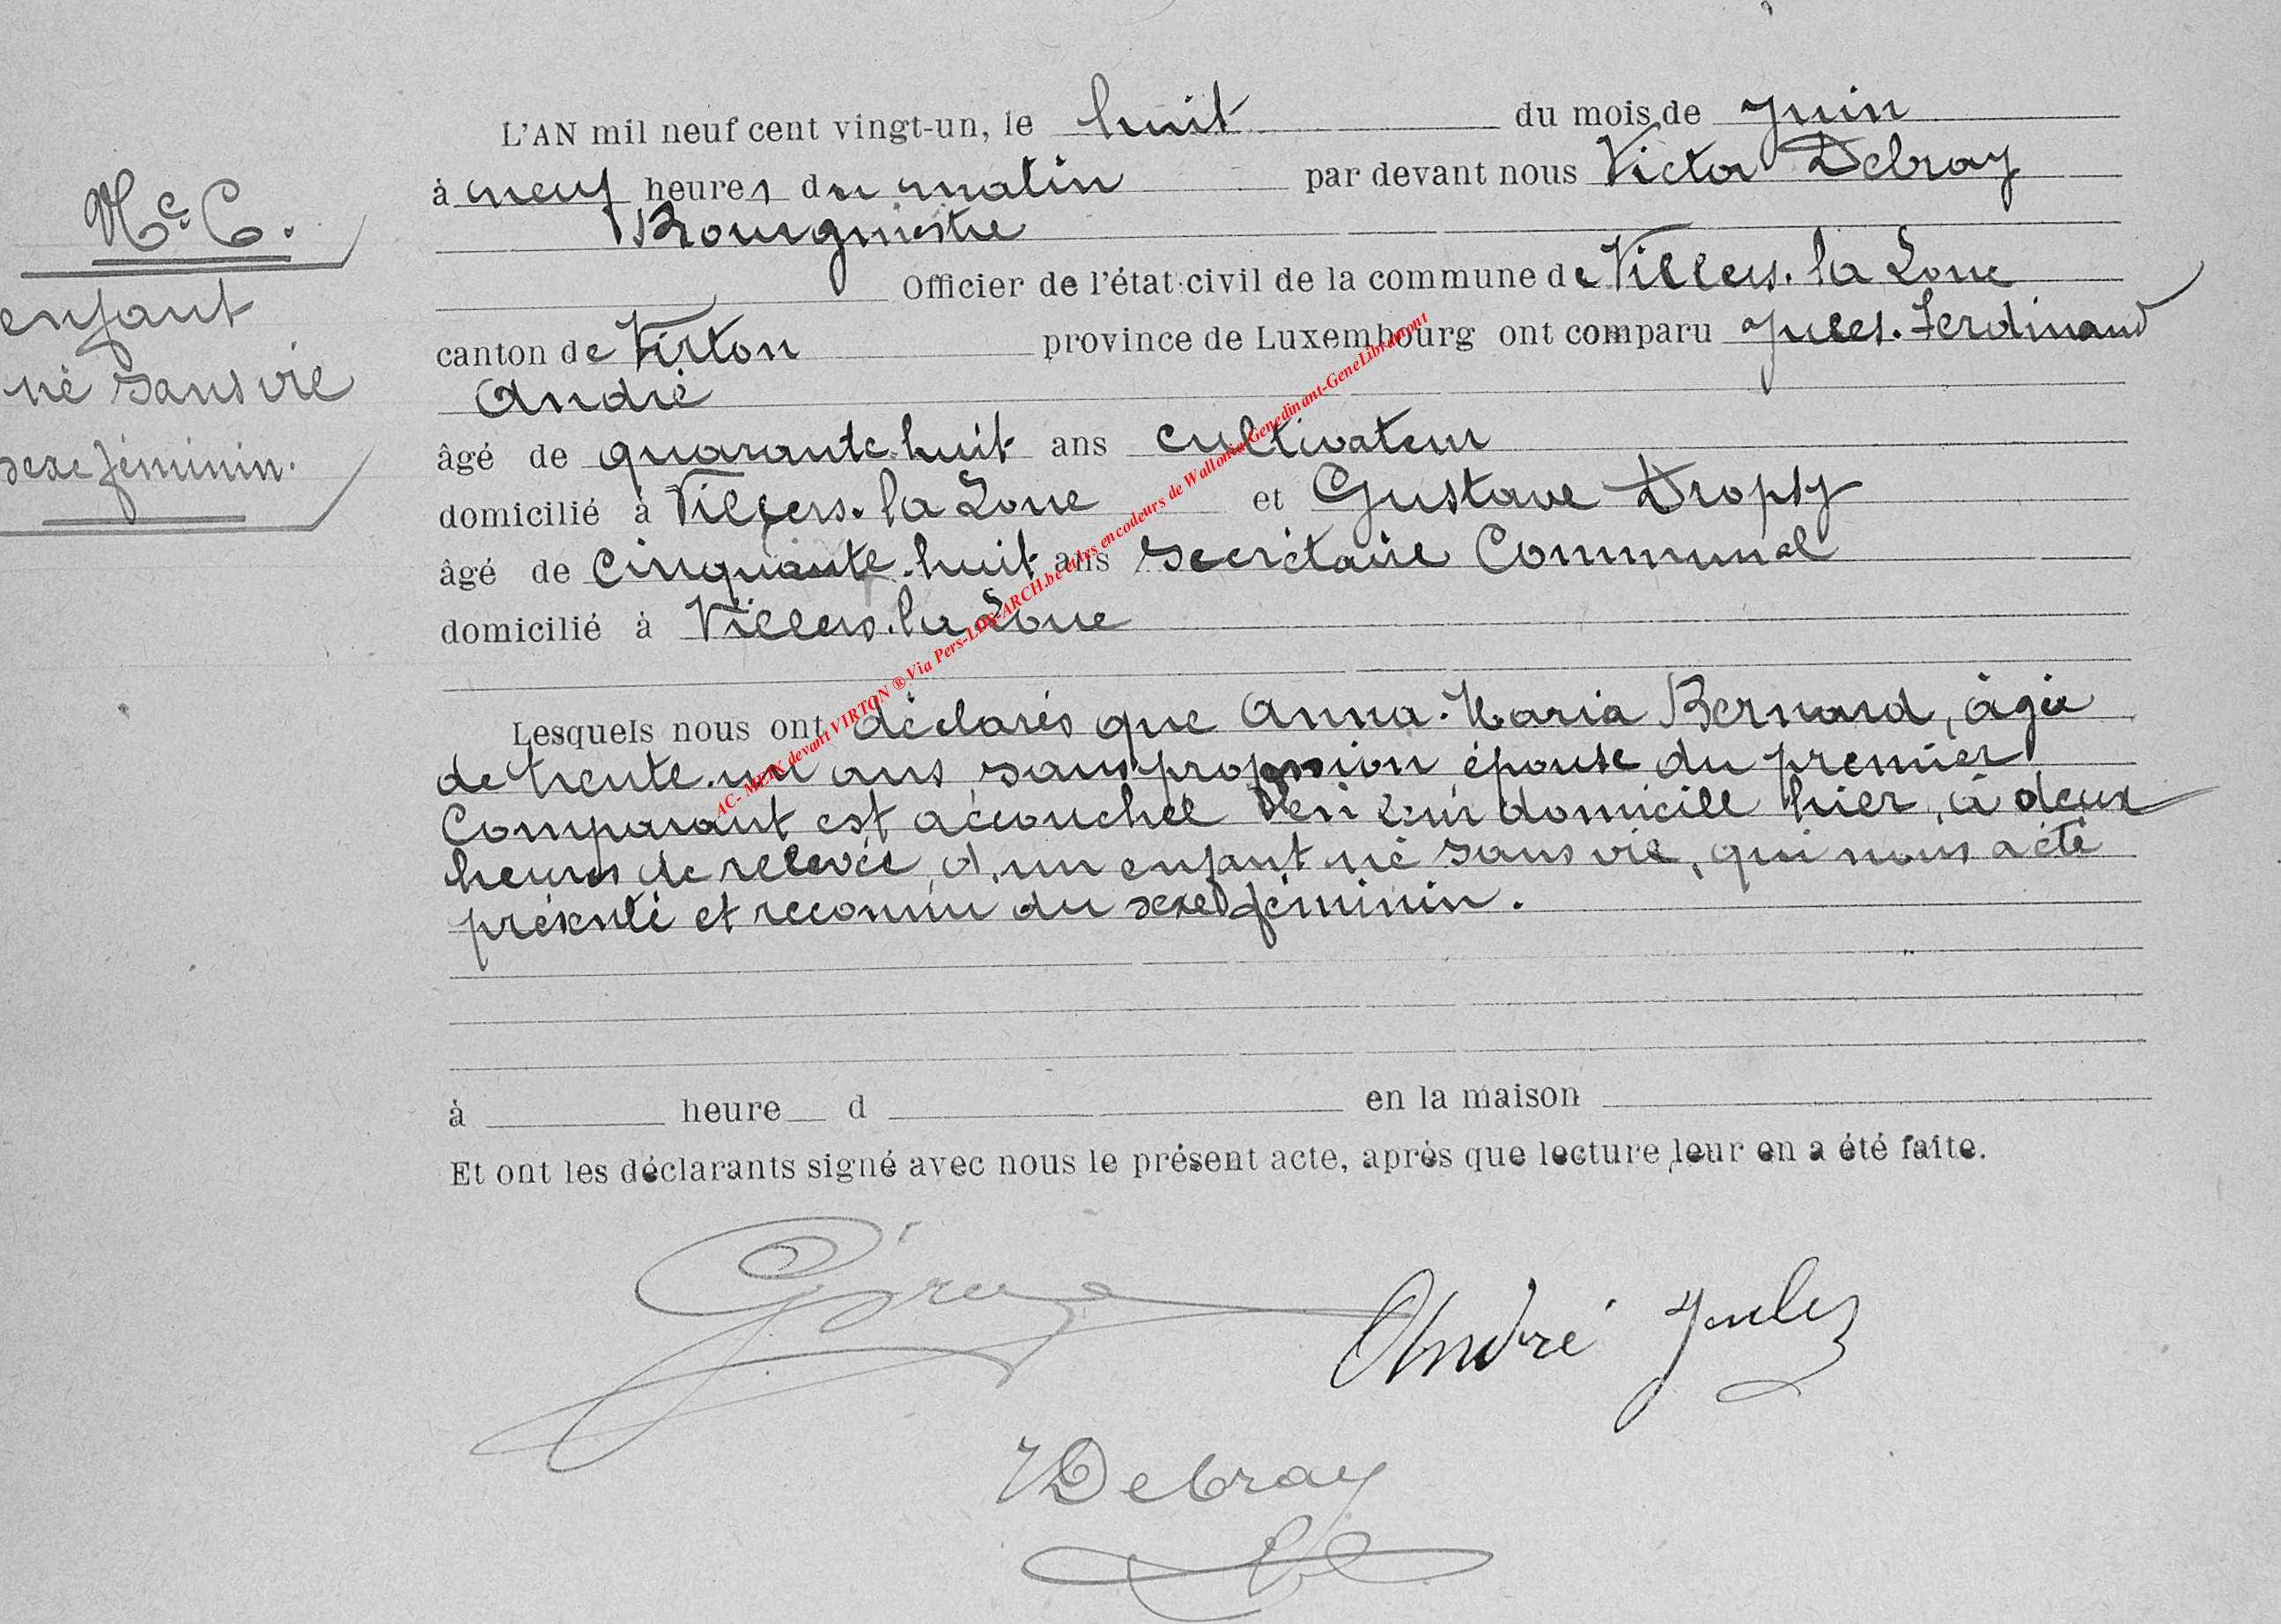 L'AN mil neuf cent vingt-un, le huit du mois de Juin
à neuf heures du matin par devant nous Victor Debray
Bourgmestre
Officier de l'état civil de la commune de Villers-la-Loue
canton de Virton province de Luxembourg ont comparu Jules-Ferdinand
André
âgé de quarante-huit ans cultivateur
domicilié à Villers-la-Loue et Gustave Dropsy
âgé de cinquante-huit ans secrétaire Communal
domicilié à Villers-la-Loue
Lesquels nous ont déclarés que Anna-Maria Bernard, âgée
de trente-un ans, sans profession épouse du premier
Comparant est accouchée en leur domicile hier, à deux
heures de relevée, d'un enfant né sans vie, qui nous a été
présenté et reconnu du sexe féminin.
à heure d en la maison
Et ont les déclarants signé avec nous le présent acte, après que lecture leur en a été faite.
André Jules
VDebray
Nº 6.
enfant
né sans vie
sexe féminin.
AC- MEIX devant VIRTON ® Via Pers-LDS-ARCH.be et les encodeurs de Wallonia-Genedinant-GeneLibramont